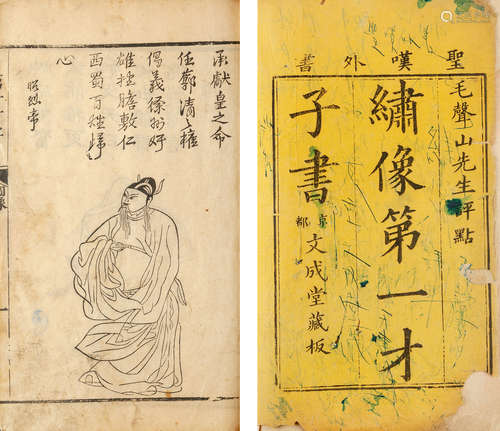 承獻皇之命
任廓清之權
仗義
雄挫膽敷仁
西蜀百姓歸
心
昭烈帝
聖嘆外書
毛聲山先生評點
繡像第一才
子書
京都文成堂藏板